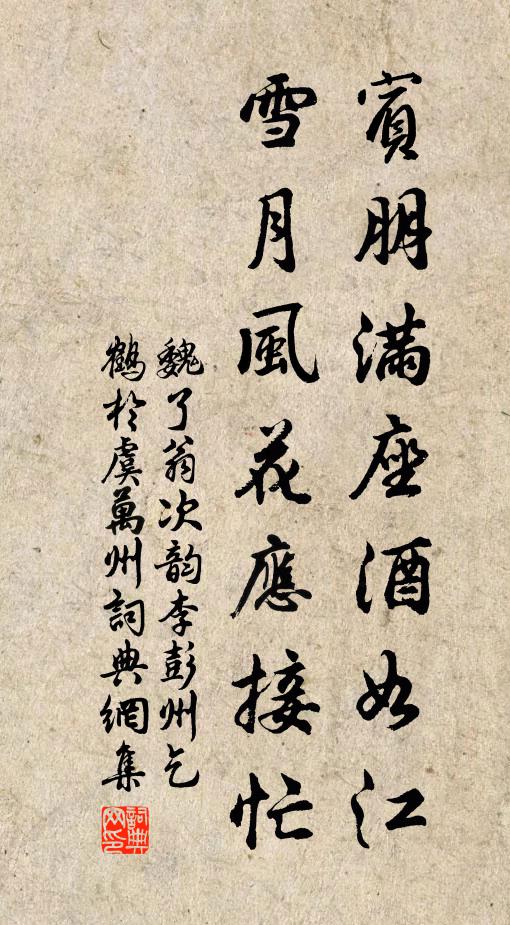 賓朋滿座酒如江
雪月風花應接忙
魏了翁次韵李彭州乞
鶴於虞萬州詞典網集
詞典
网印